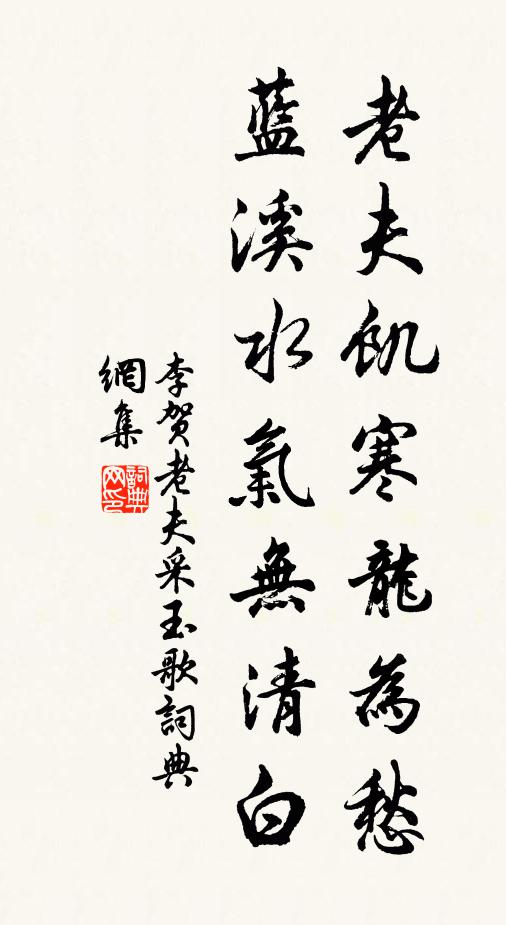 老夫飢寒龍為愁
藍溪水氣無清白
李賀老夫采玉歌詞典
網集
詞典網印